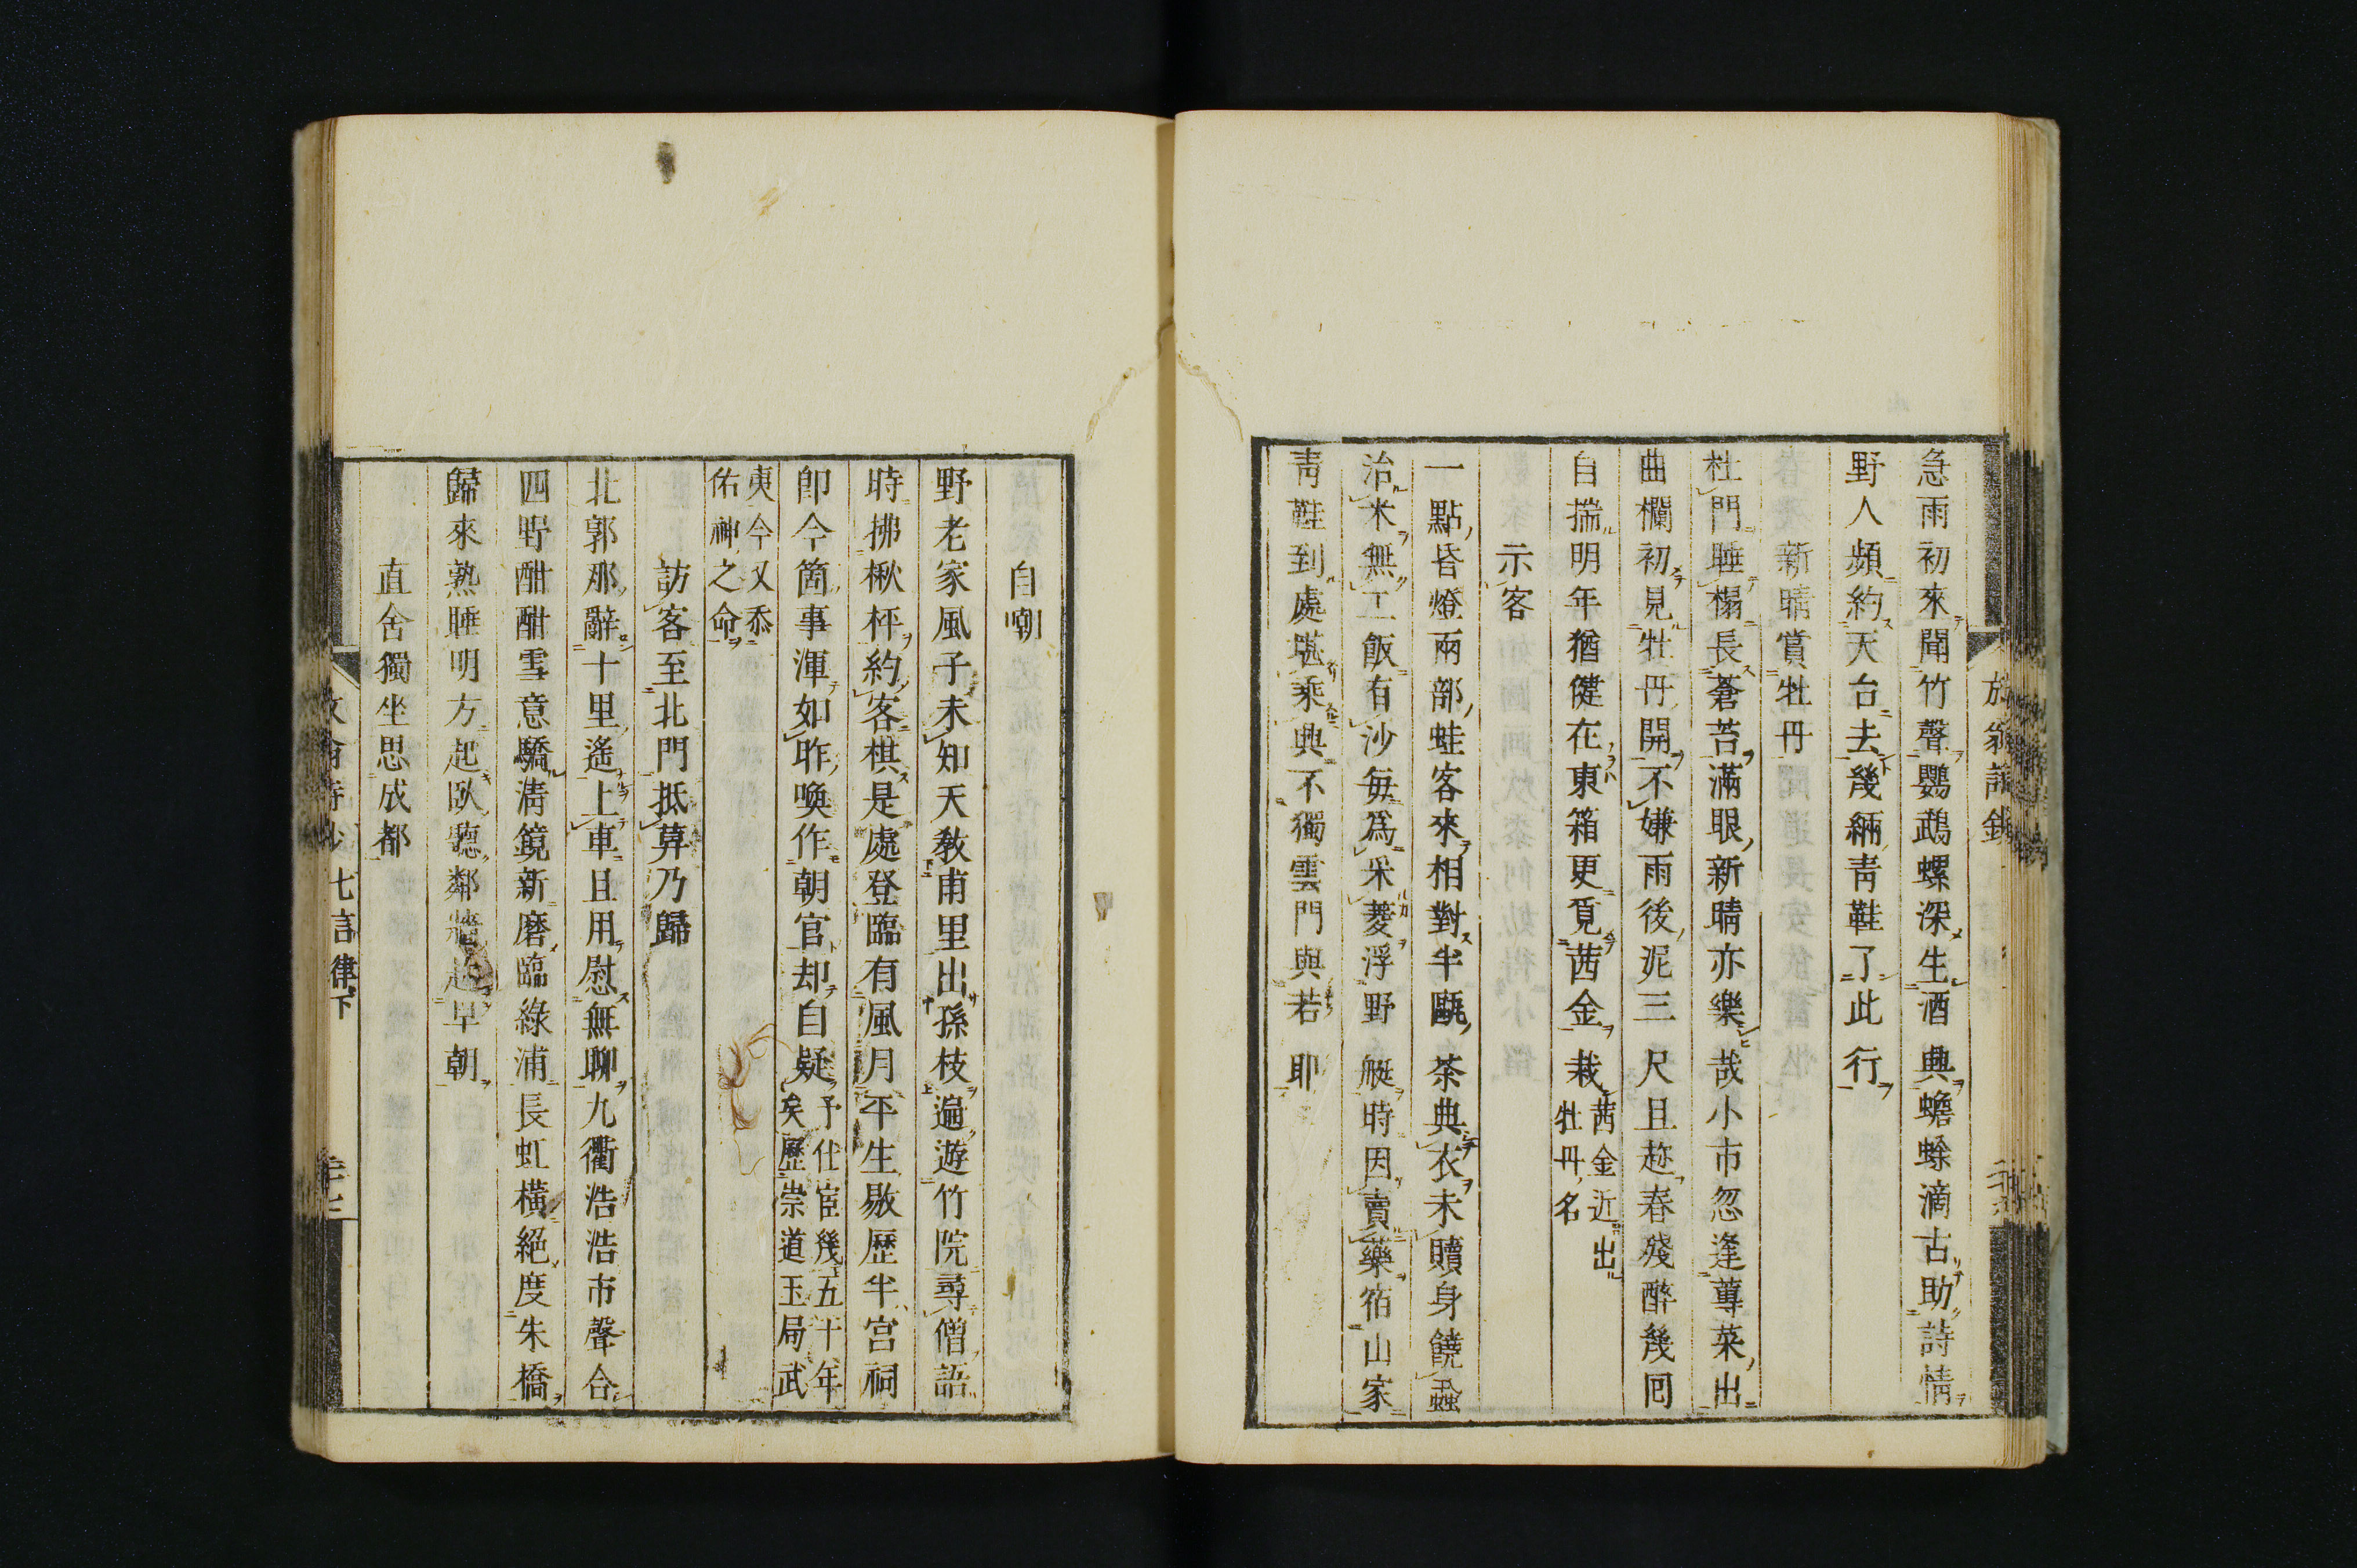 急雨初來聞竹聲鸚鵡螺深生酒興蟾蜍滴古助詩情
野人頻約天台去幾緉靑鞋了此行
新晴賞牡丹
杜門睡榻長蒼苔滿眼新晴亦樂哉小市忽逢蓴菜出
曲欄初見牡丹開不嫌雨後泥三尺且趂春殘醉幾囘
自揣明年猶健在東箱更覓茜金栽茜金近出
牡丹名
示客
一點昏燈兩部蛙客來相對半甌茶典衣未贖身饒蝨
治米無工飯有沙每爲采菱浮野艇時因賣藥宿山家
靑鞋到處堪乘興不獨雲門與若耶
自嘲
野老家風子未知天敎甫里出孫枝遍遊竹院尋僧語
時拂楸枰約客棋是處登臨有風月平生敭歷半宮祠
卽今箇事渾如昨喚作朝官却自疑予仕宦幾五十年
矣歷崇道玉局武
夷今又忝
佑神之命
訪客至北門抵莫乃歸
北郭那辭十里遙上車且用慰無聊九衢浩浩市聲合
四野酣酣雪意驕淸鏡新磨臨綠浦長虹橫絕度朱橋
歸來熟睡明方起臥聽鄰牆趂早朝
直舍獨坐思成都
七言律下